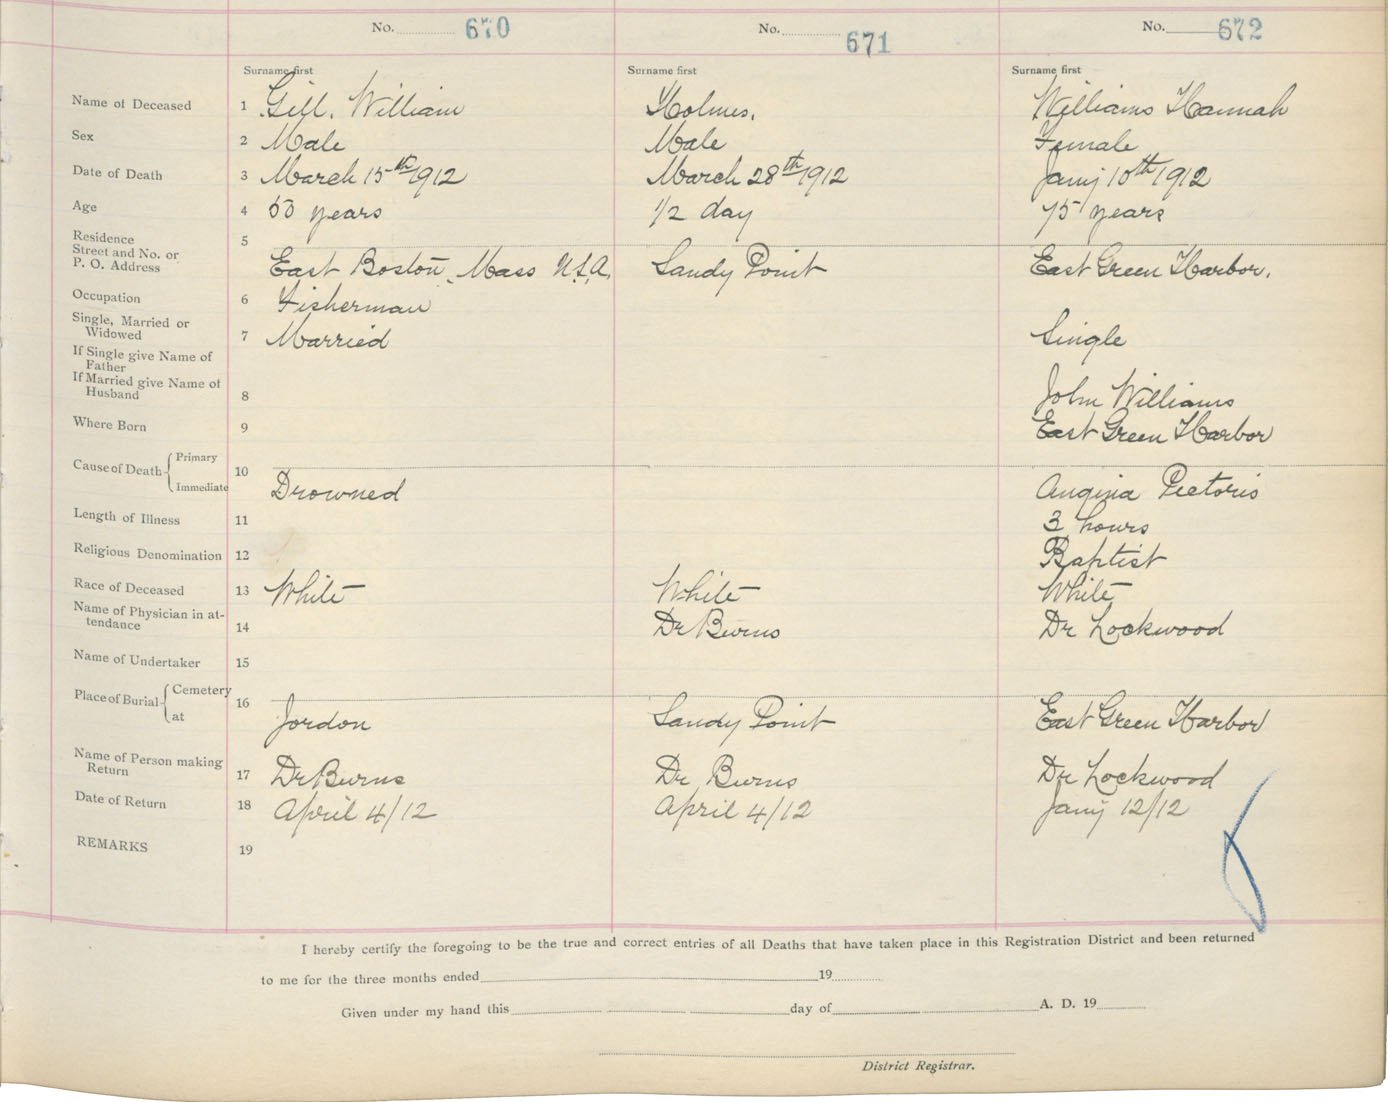 No. 670 No. 671 No. 672
Surname first Surname first Surname first
Name of Deceased 1 Gill, William Holmes, Williams Hannah
Sex 2 Male Male Female
Date of Death 3 March 15th 1912 March 28th 1912 Jany 10th 1912
Age 4 50 years 1/2 day 75 years
Residence 5
Street and No. or
P. O. Address East Boston, Mass U.S.A. Sandy Point East Green Harbor.
Occupation 6 Fisherman
Single, Married or
Widowed 7 Married Single
If Single give Name of
Father
If Married give Name of
Husband 8 John Williams
Where Born 9 East Green Harbor
Cause of Death Primary 10
Immediate Drowned Angina Pectoris
Length of Illness 11 3 hours
Religious Denomination 12 Baptist
Race of Deceased 13 White White White
Name of Physician in at-
tendance 14 Dr Burns Dr Lockwood
Name of Undertaker 15
Place of Burial Cemetery 16
at Jordon Sandy Point East Green Harbor
Name of Person making
Return 17 Dr Burns Dr Burns Dr Lockwood
Date of Return 18 April 4/12 April 4/12 Jany 12/12
REMARKS 19
I hereby certify the foregoing to be the true and correct entries of all Deaths that have taken place in this Registration District and been returned
to me for the three months ended 19
Given under my hand this day of A. D. 19
District Registrar.